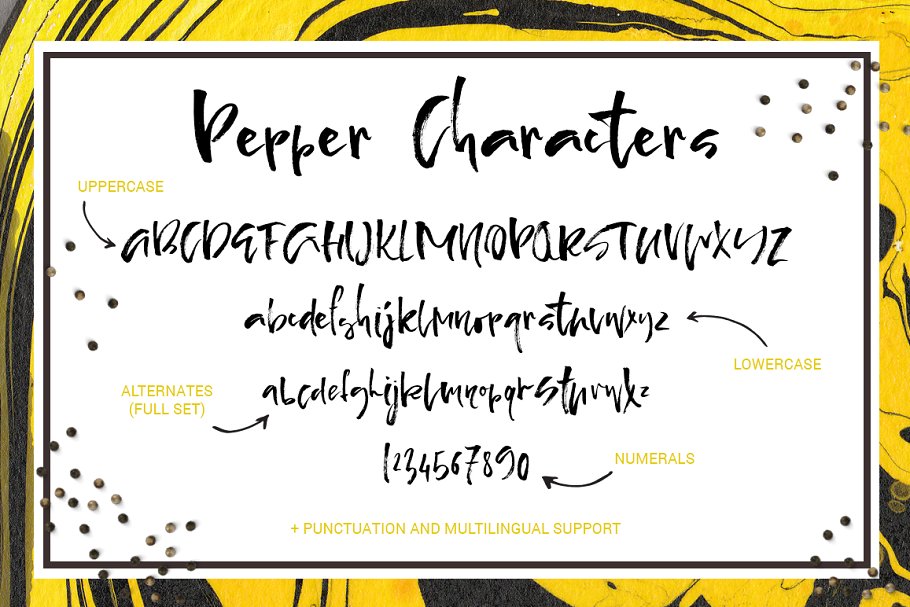 Pepper Characters
UPPERCASE
ABCDEFGHIJKLMNOPQRSTUVWXYZ
abcdefghijklmnopqrstuvwxyz
LOWERCASE
ALTERNATES
(FULL SET)
abcdefghijklmnopqrstuvwxyz
1234567890
NUMERALS
+ PUNCTUATION AND MULTILINGUAL SUPPORT